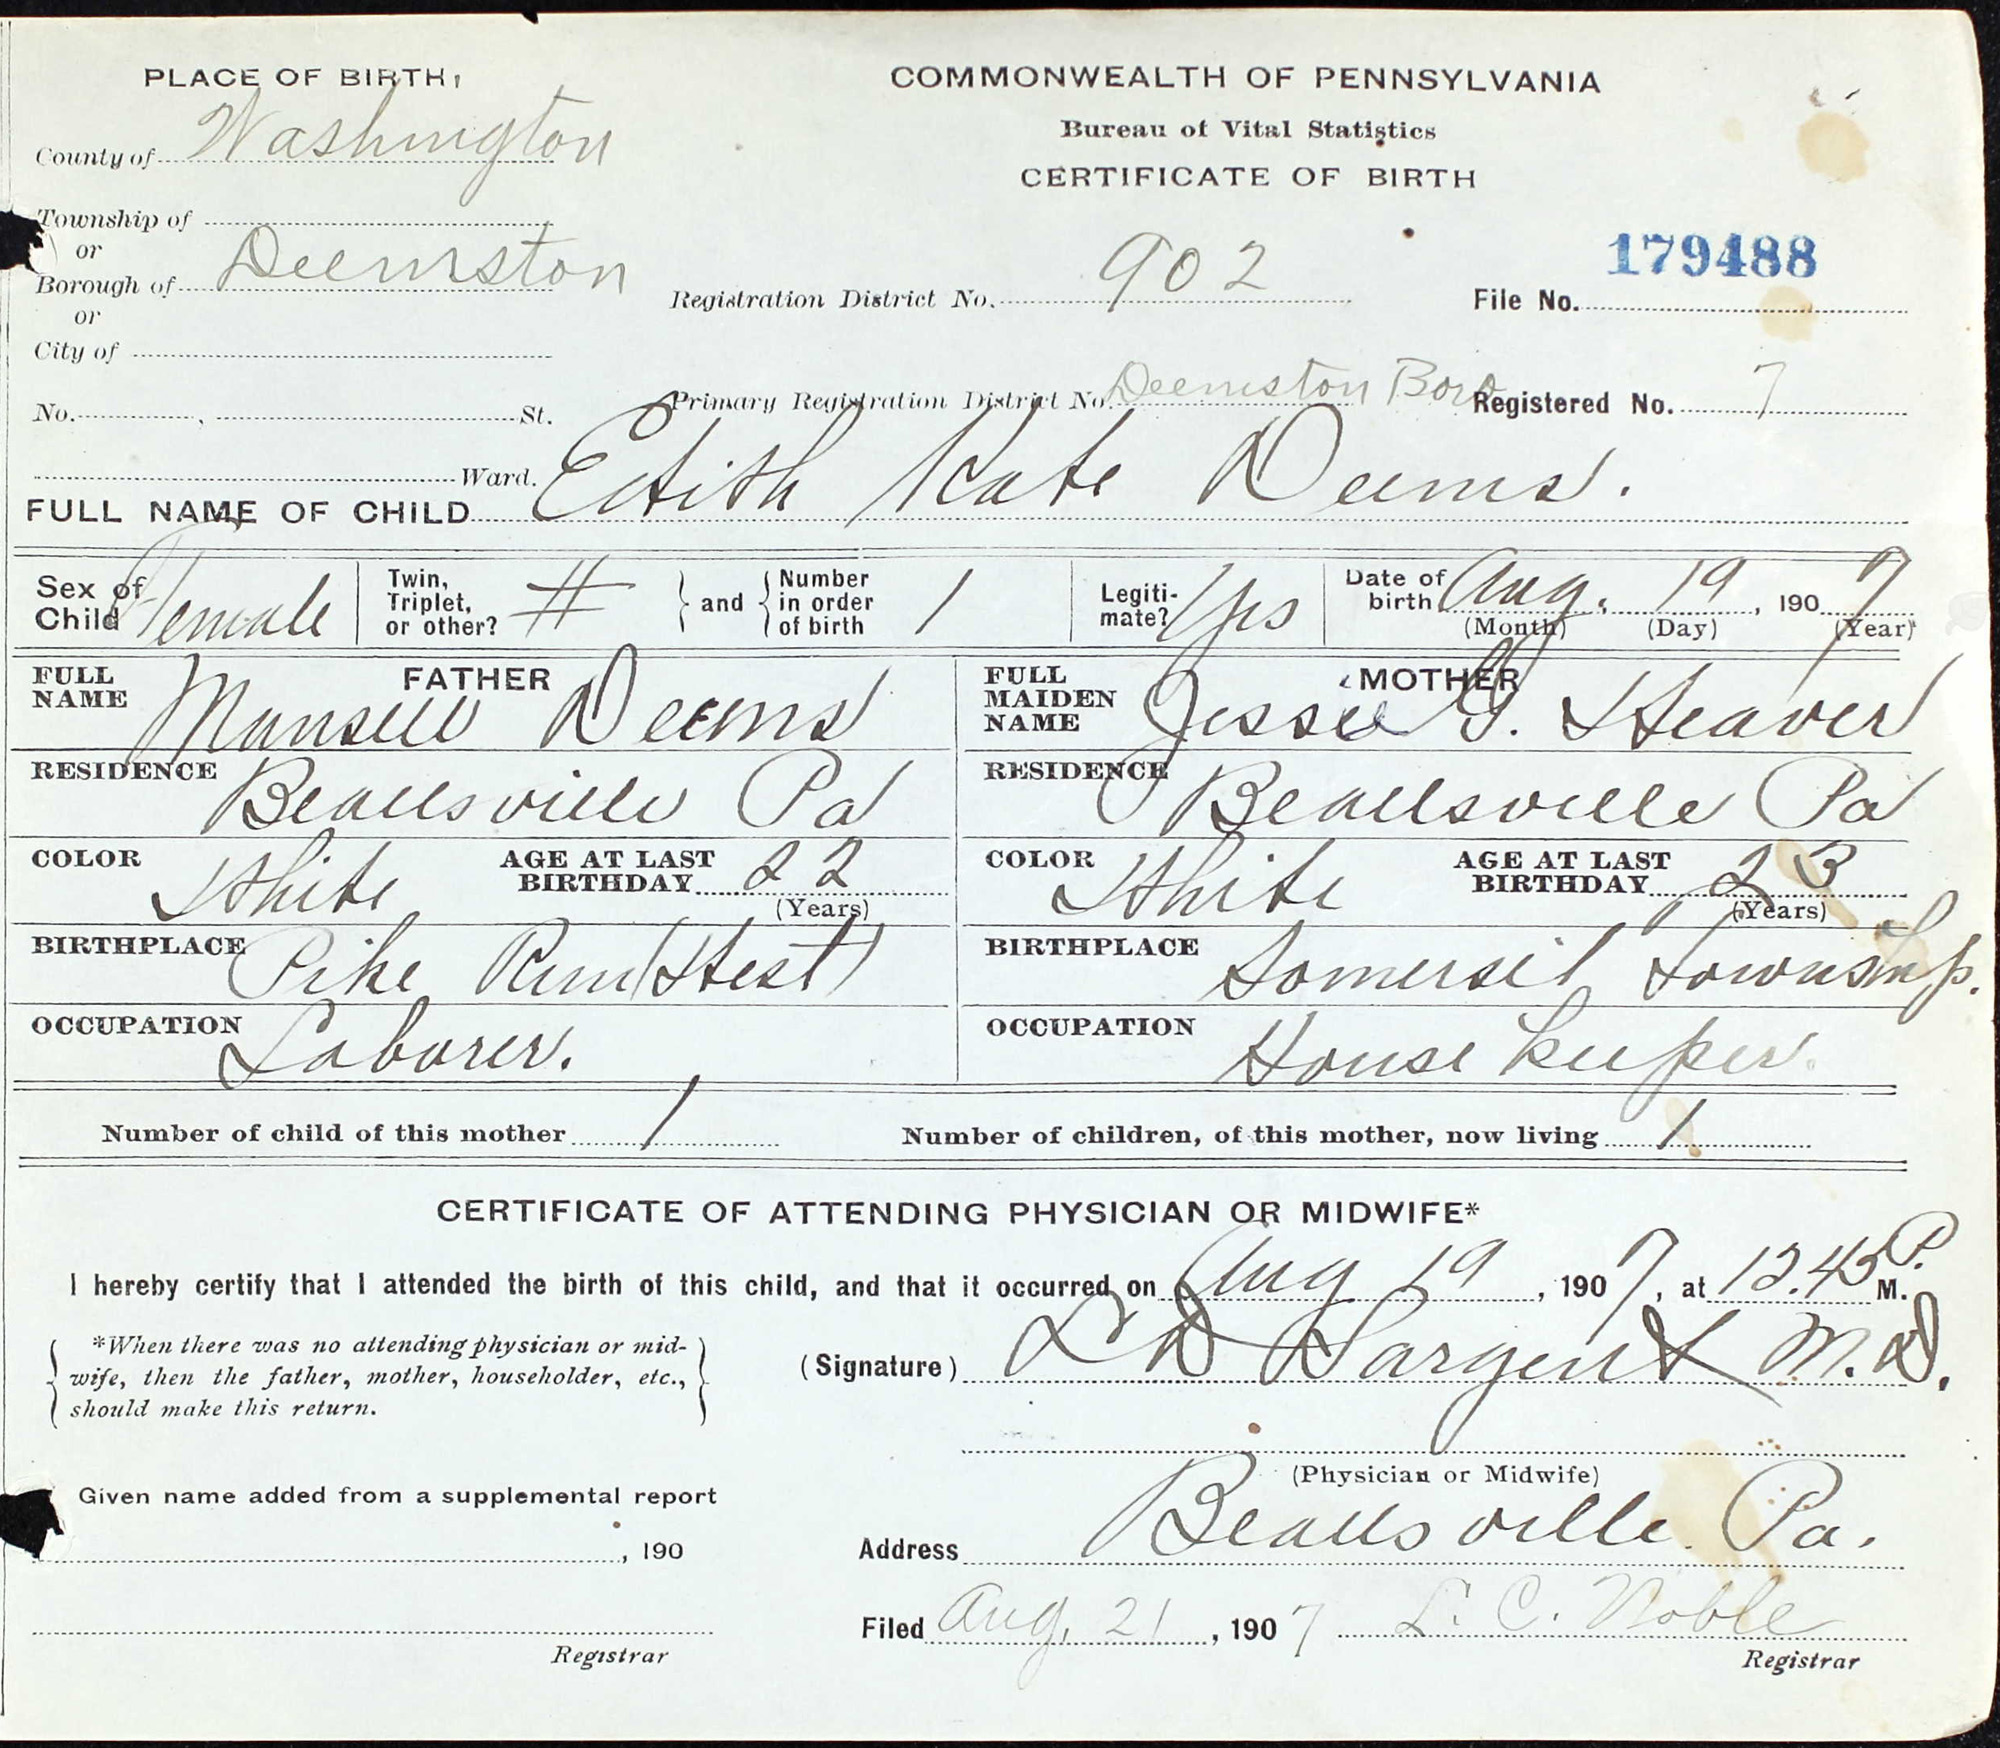 PLACE OF BIRTH,
County of Washington
Township of
or
Borough of Deemston
or
City of
No. , St.
Ward.
COMMONWEALTH OF PENNSYLVANIA
Bureau of Vital Statistics
CERTIFICATE OF BIRTH
179488
Registration District No. 902 File No.
Primary Registration District No. Deemston Boro Registered No. 7
FULL NAME OF CHILD Edith Kate Deems.
Sex of Child Female Twin, Triplet, or other? # and Number in order of birth 1 Legiti-mate? Yes Date of birth Aug. 19, 1907
(Month) (Day) (Year)
FATHER
FULL NAME Mansell Deems
RESIDENCE Beallsville Pa
COLOR White AGE AT LAST BIRTHDAY 22
(Years)
BIRTHPLACE Pike Run (West)
OCCUPATION Laborer.
MOTHER
FULL MAIDEN NAME Jessie G. Weaver
RESIDENCE Beallsville Pa
COLOR White AGE AT LAST BIRTHDAY 23
(Years)
BIRTHPLACE Somerset Township.
OCCUPATION House Keeper.
Number of child of this mother 1 Number of children, of this mother, now living 1
CERTIFICATE OF ATTENDING PHYSICIAN OR MIDWIFE*
I hereby certify that I attended the birth of this child, and that it occurred on Aug 19, 1907, at 12.45 P. M.
*When there was no attending physician or mid-
wife, then the father, mother, householder, etc.,
should make this return.
(Signature) L D Sargent M.D.
(Physician or Midwife)
Given name added from a supplemental report
, 190
Registrar
Address Beallsville Pa.
Filed Aug. 21, 1907 L. C. Noble
Registrar